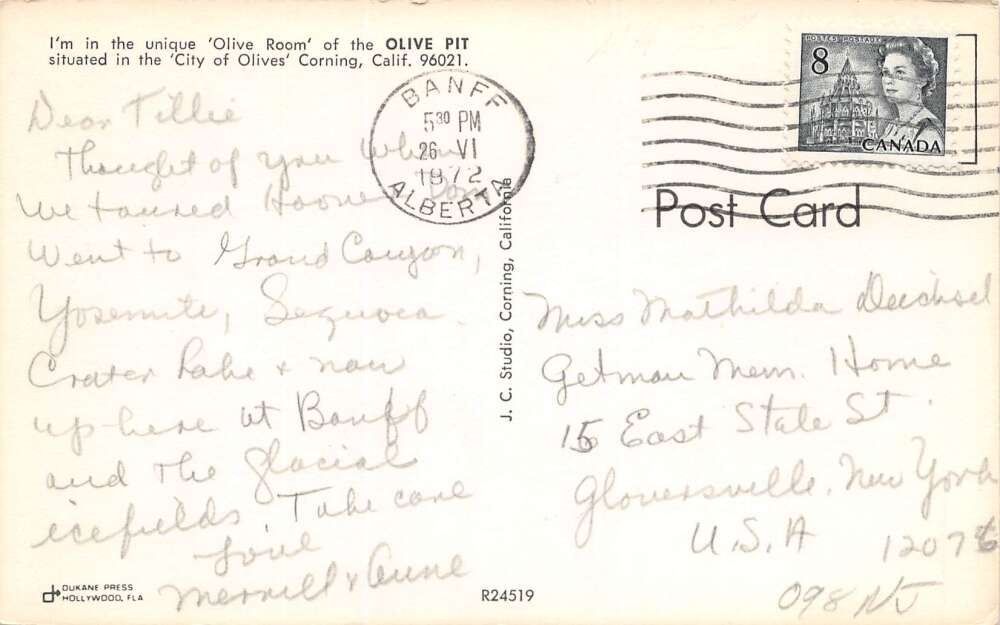 I'm in the unique 'Olive Room' of the OLIVE PIT
situated in the 'City of Olives' Corning, Calif. 96021.
Dear Tillie
Thought of you when
we toured Hoover Dam
Went to Grand Canyon,
Yosemite, Sequoia
Crater Lake & now
up here at Banff
and the glacial
icefields. Take care
Love
Merrill & Anne
DUKANE PRESS
HOLLYWOOD, FLA
BANFF
5 30 PM
26 VI
1972
ALBERTA
J. C. Studio, Corning, California
R24519
POSTES POSTAGE
8
CANADA
Post Card
Miss Mathilda Deichsel
Getman Mem. Home
15 East State St.
Gloversville, New York
U.S.A 12078
098 NJ